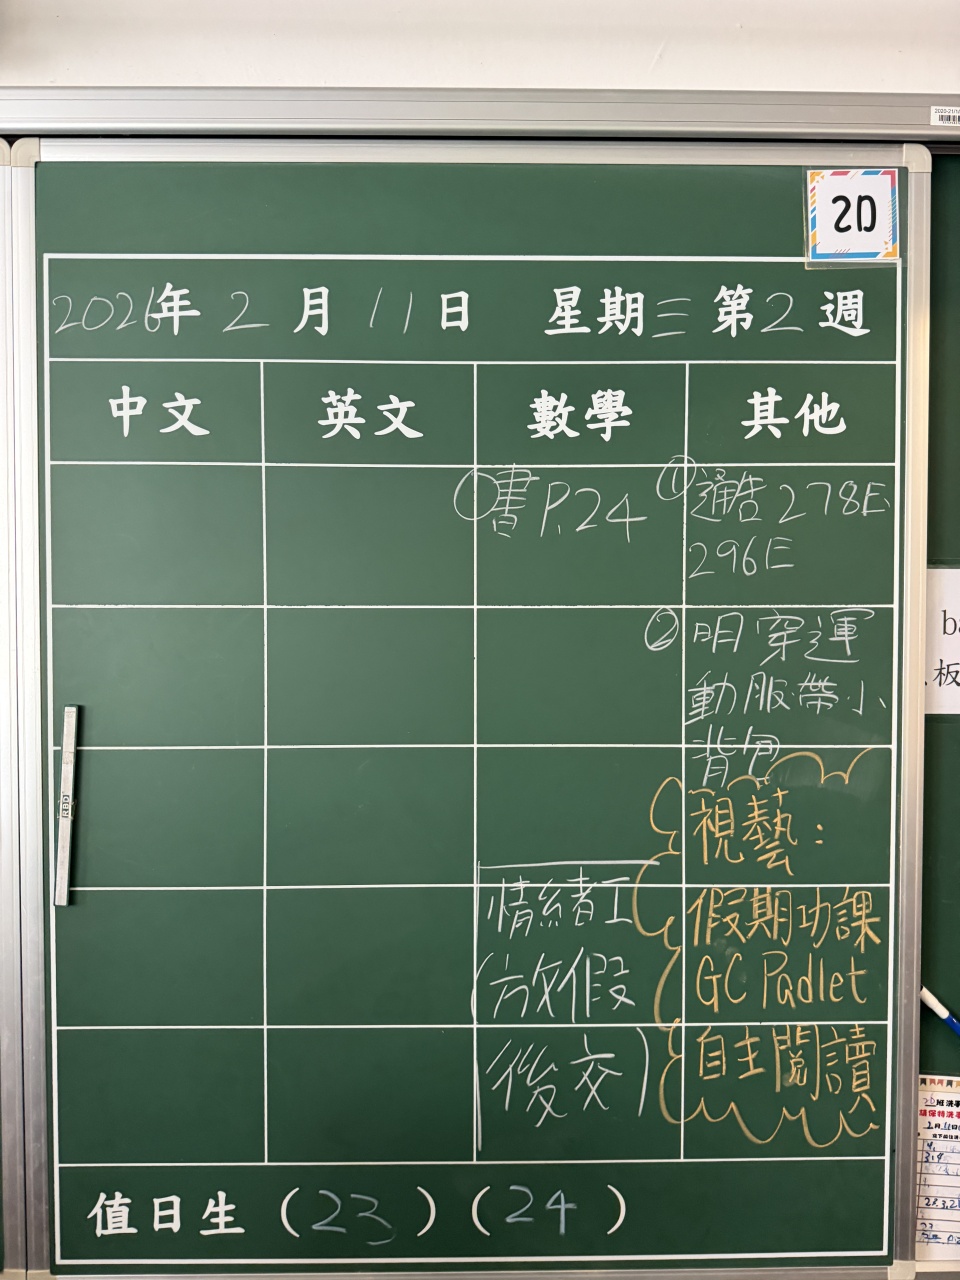 2D
2026年2月11日 星期三 第2週
中文 英文 數學 其他
①書P.24
①通告278E
296E
②明穿運
動服帶小
背包
視藝：
假期功課
GC Padlet
自主閱讀
情緒工
(放假
後交)
值日生（23）（24）
RBD
板